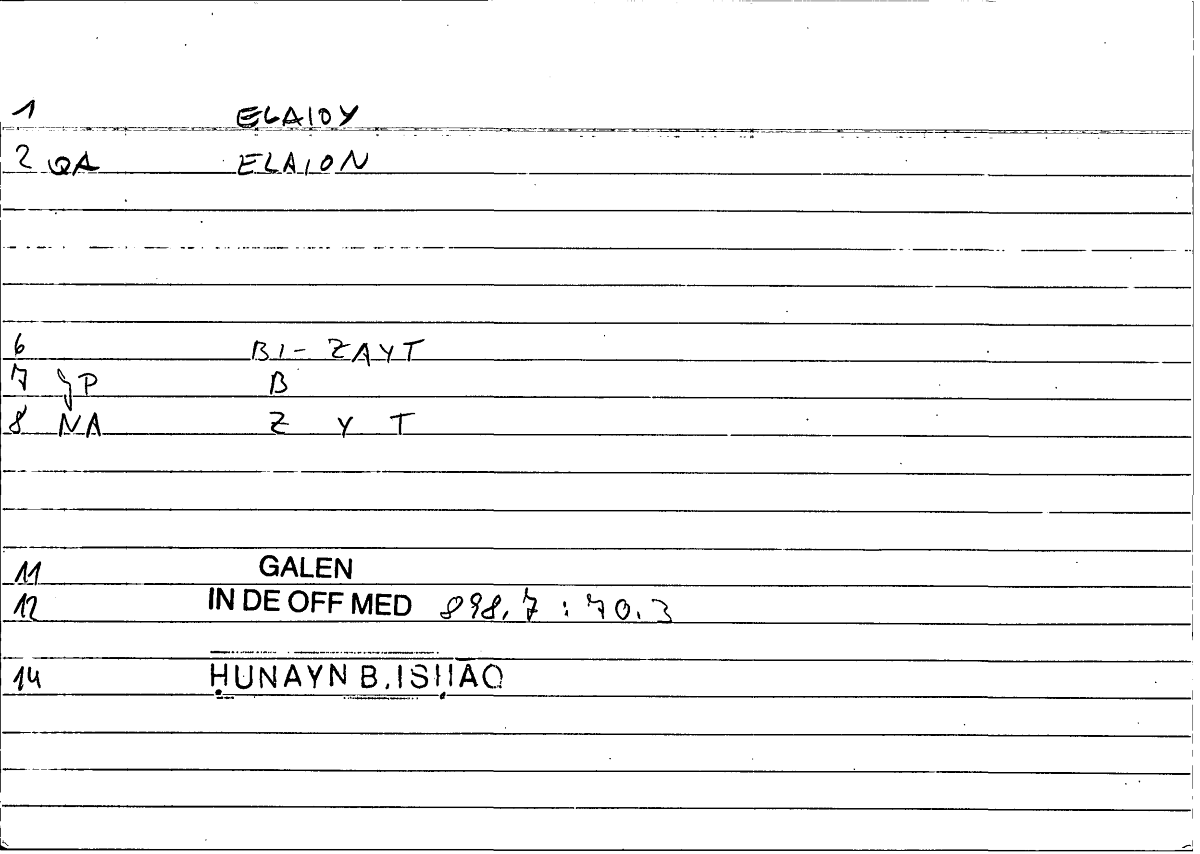 1 ELAIOY
2 QA ELAION
6 BI- ZAYT
7 JP B
8 NA Z Y T
11 GALEN
12 IN DE OFF MED 898.7 : 70.3
14 ḤUNAYN B. ISḤĀQ